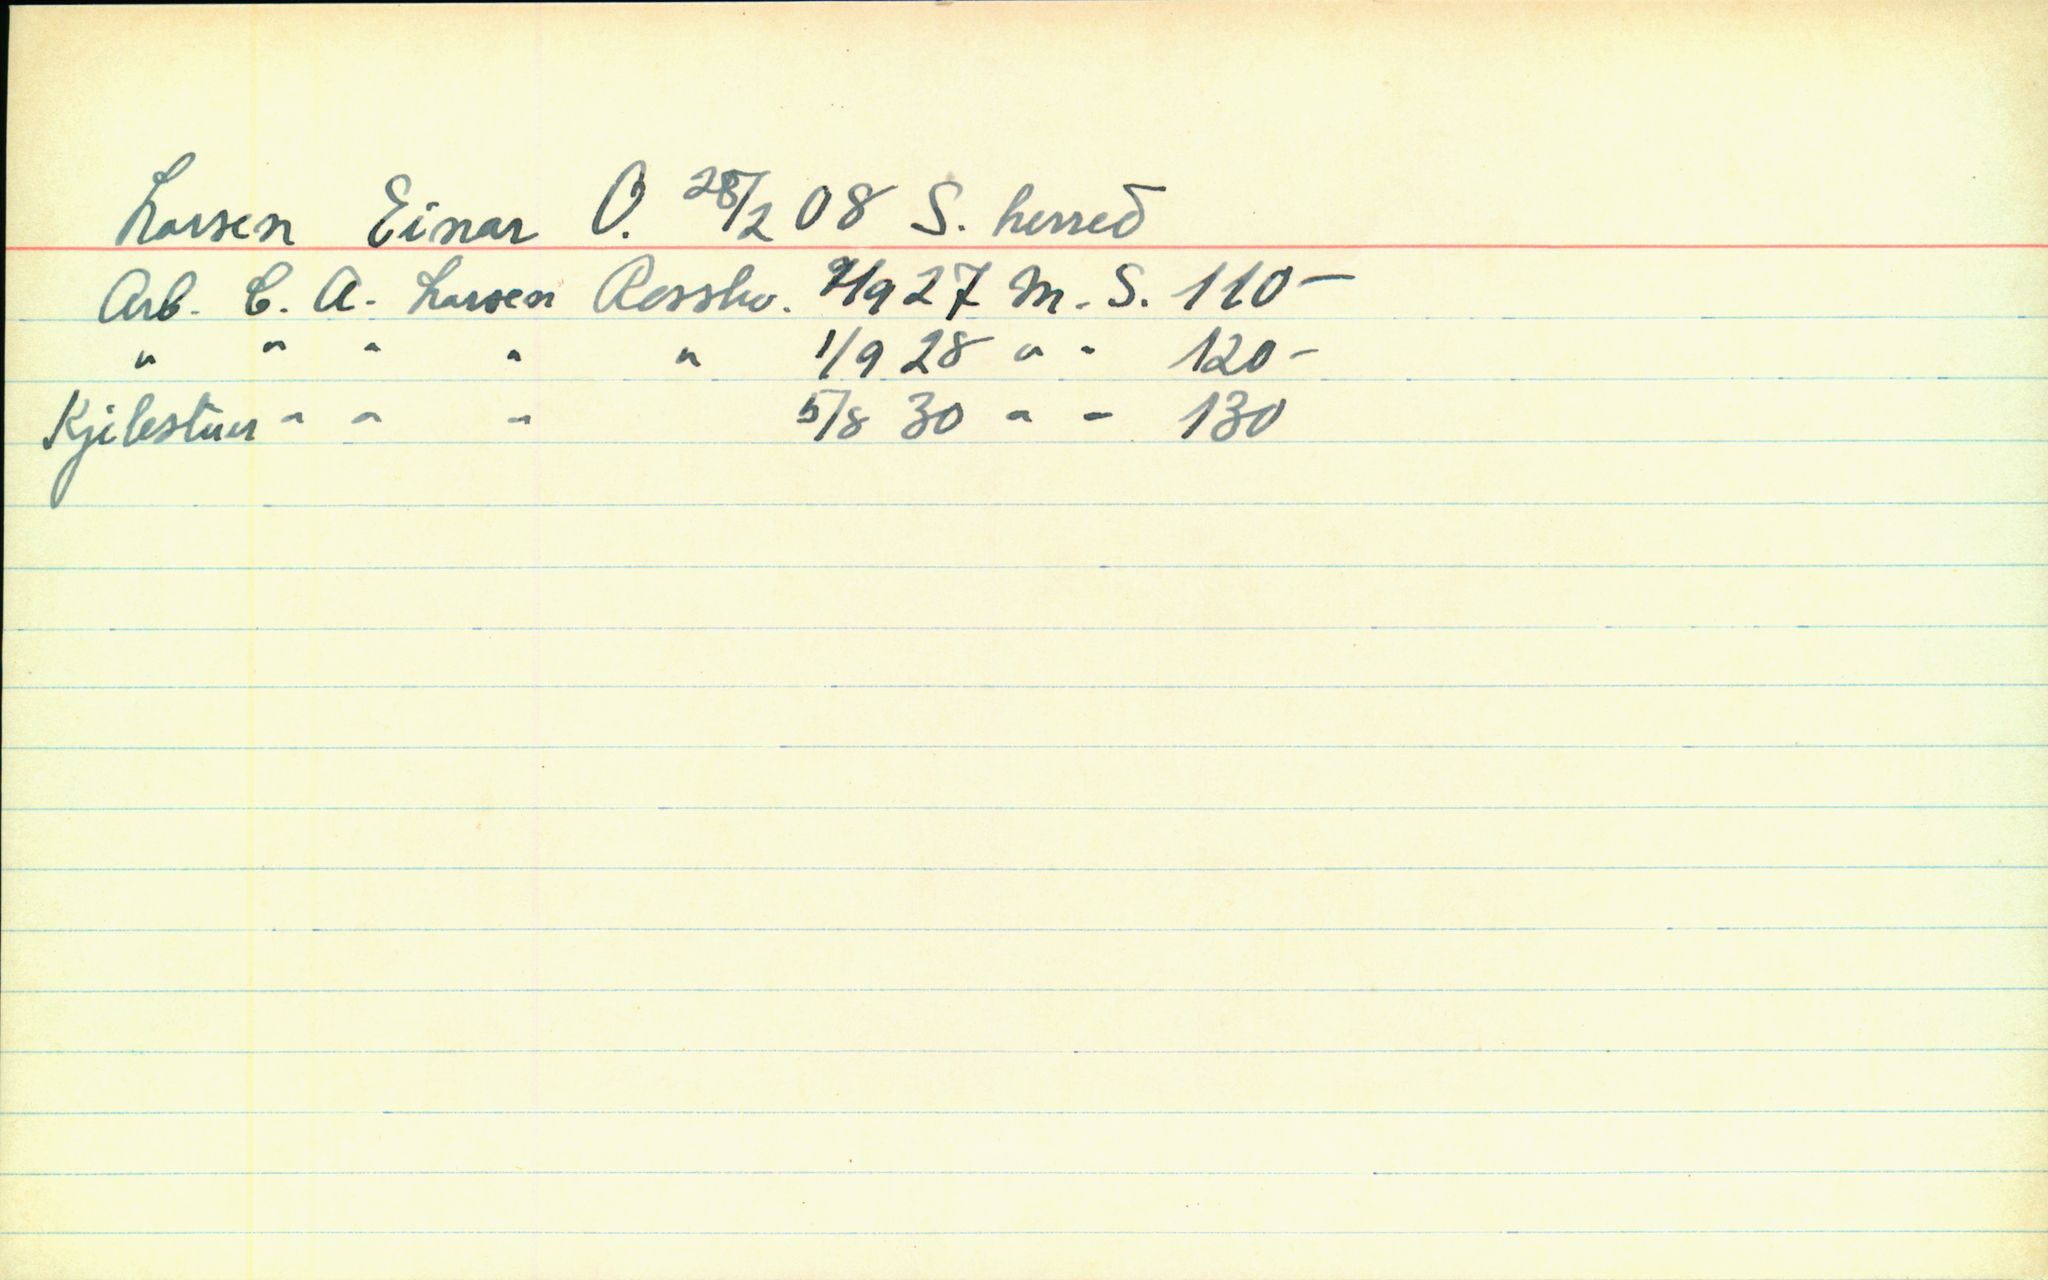 Larsen Einar O. 28/2 08 S. herred
Arb. C. A. Larsen Rosshv. 9/9 27 M. S. 110 -
" " " " " 1/9 28 " " 120 -
Kjilestuer " " " 5/8 30 " " 130